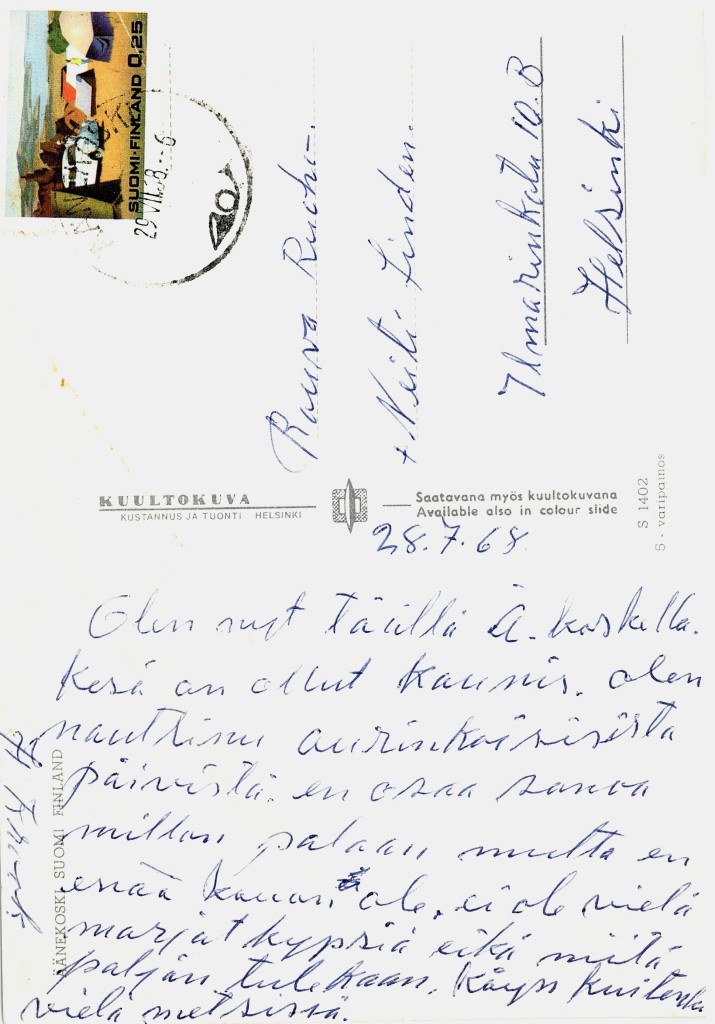 SUOMI-FINLAND 0,25
29.VII.68.--6
Rauva Ruoho.
+ Neiti Linden.
Ilmarinkatu 10.B
Helsinki
KUULTOKUVA
KUSTANNUS JA TUONTI HELSINKI
Saatavana myös kuultokuvana
Available also in colour slide
S 1402
5 - väripainos
28.7.68
Olen nyt täällä Ä-koskella.
Kesä on ollut kaunis. olen
nauttinu aurinkoisisista
päivistä. en osaa sanoa
millon palaan mutta en
enää kauan ole. ei ole vielä
marjat kypsiä eikä niitä
paljän tulekaan. Käyn kuitenki
vielä metsissä.
ÄÄNEKOSKI SUOMI FINLAND